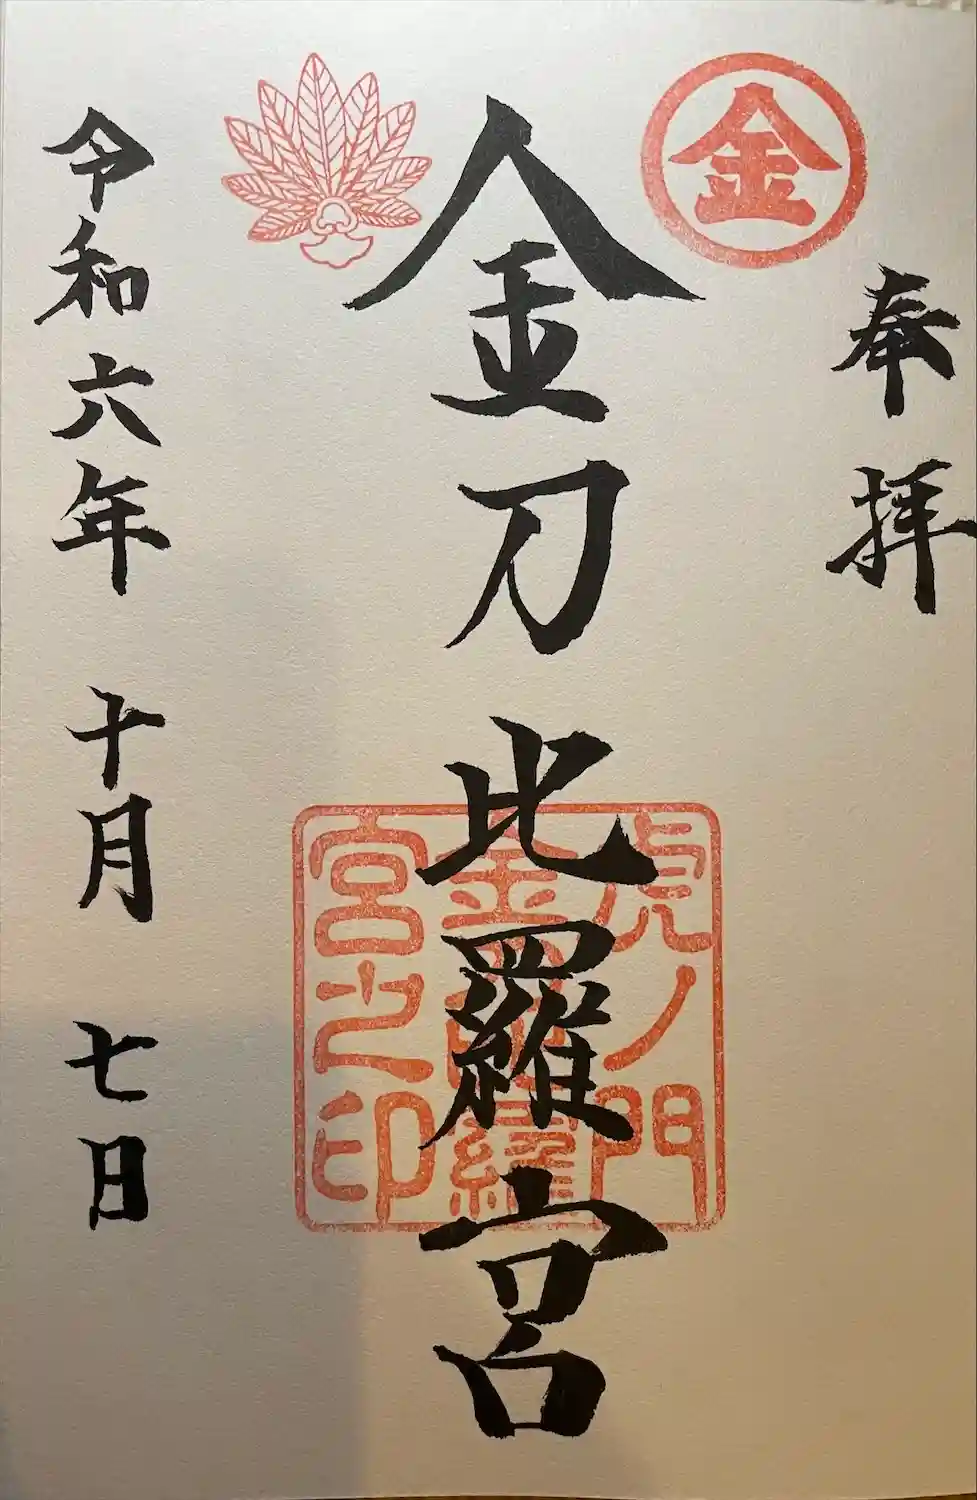 金
奉拝
金刀比羅宮
虎ノ門
金刀比羅
宮之印
令和六年 十月 七日